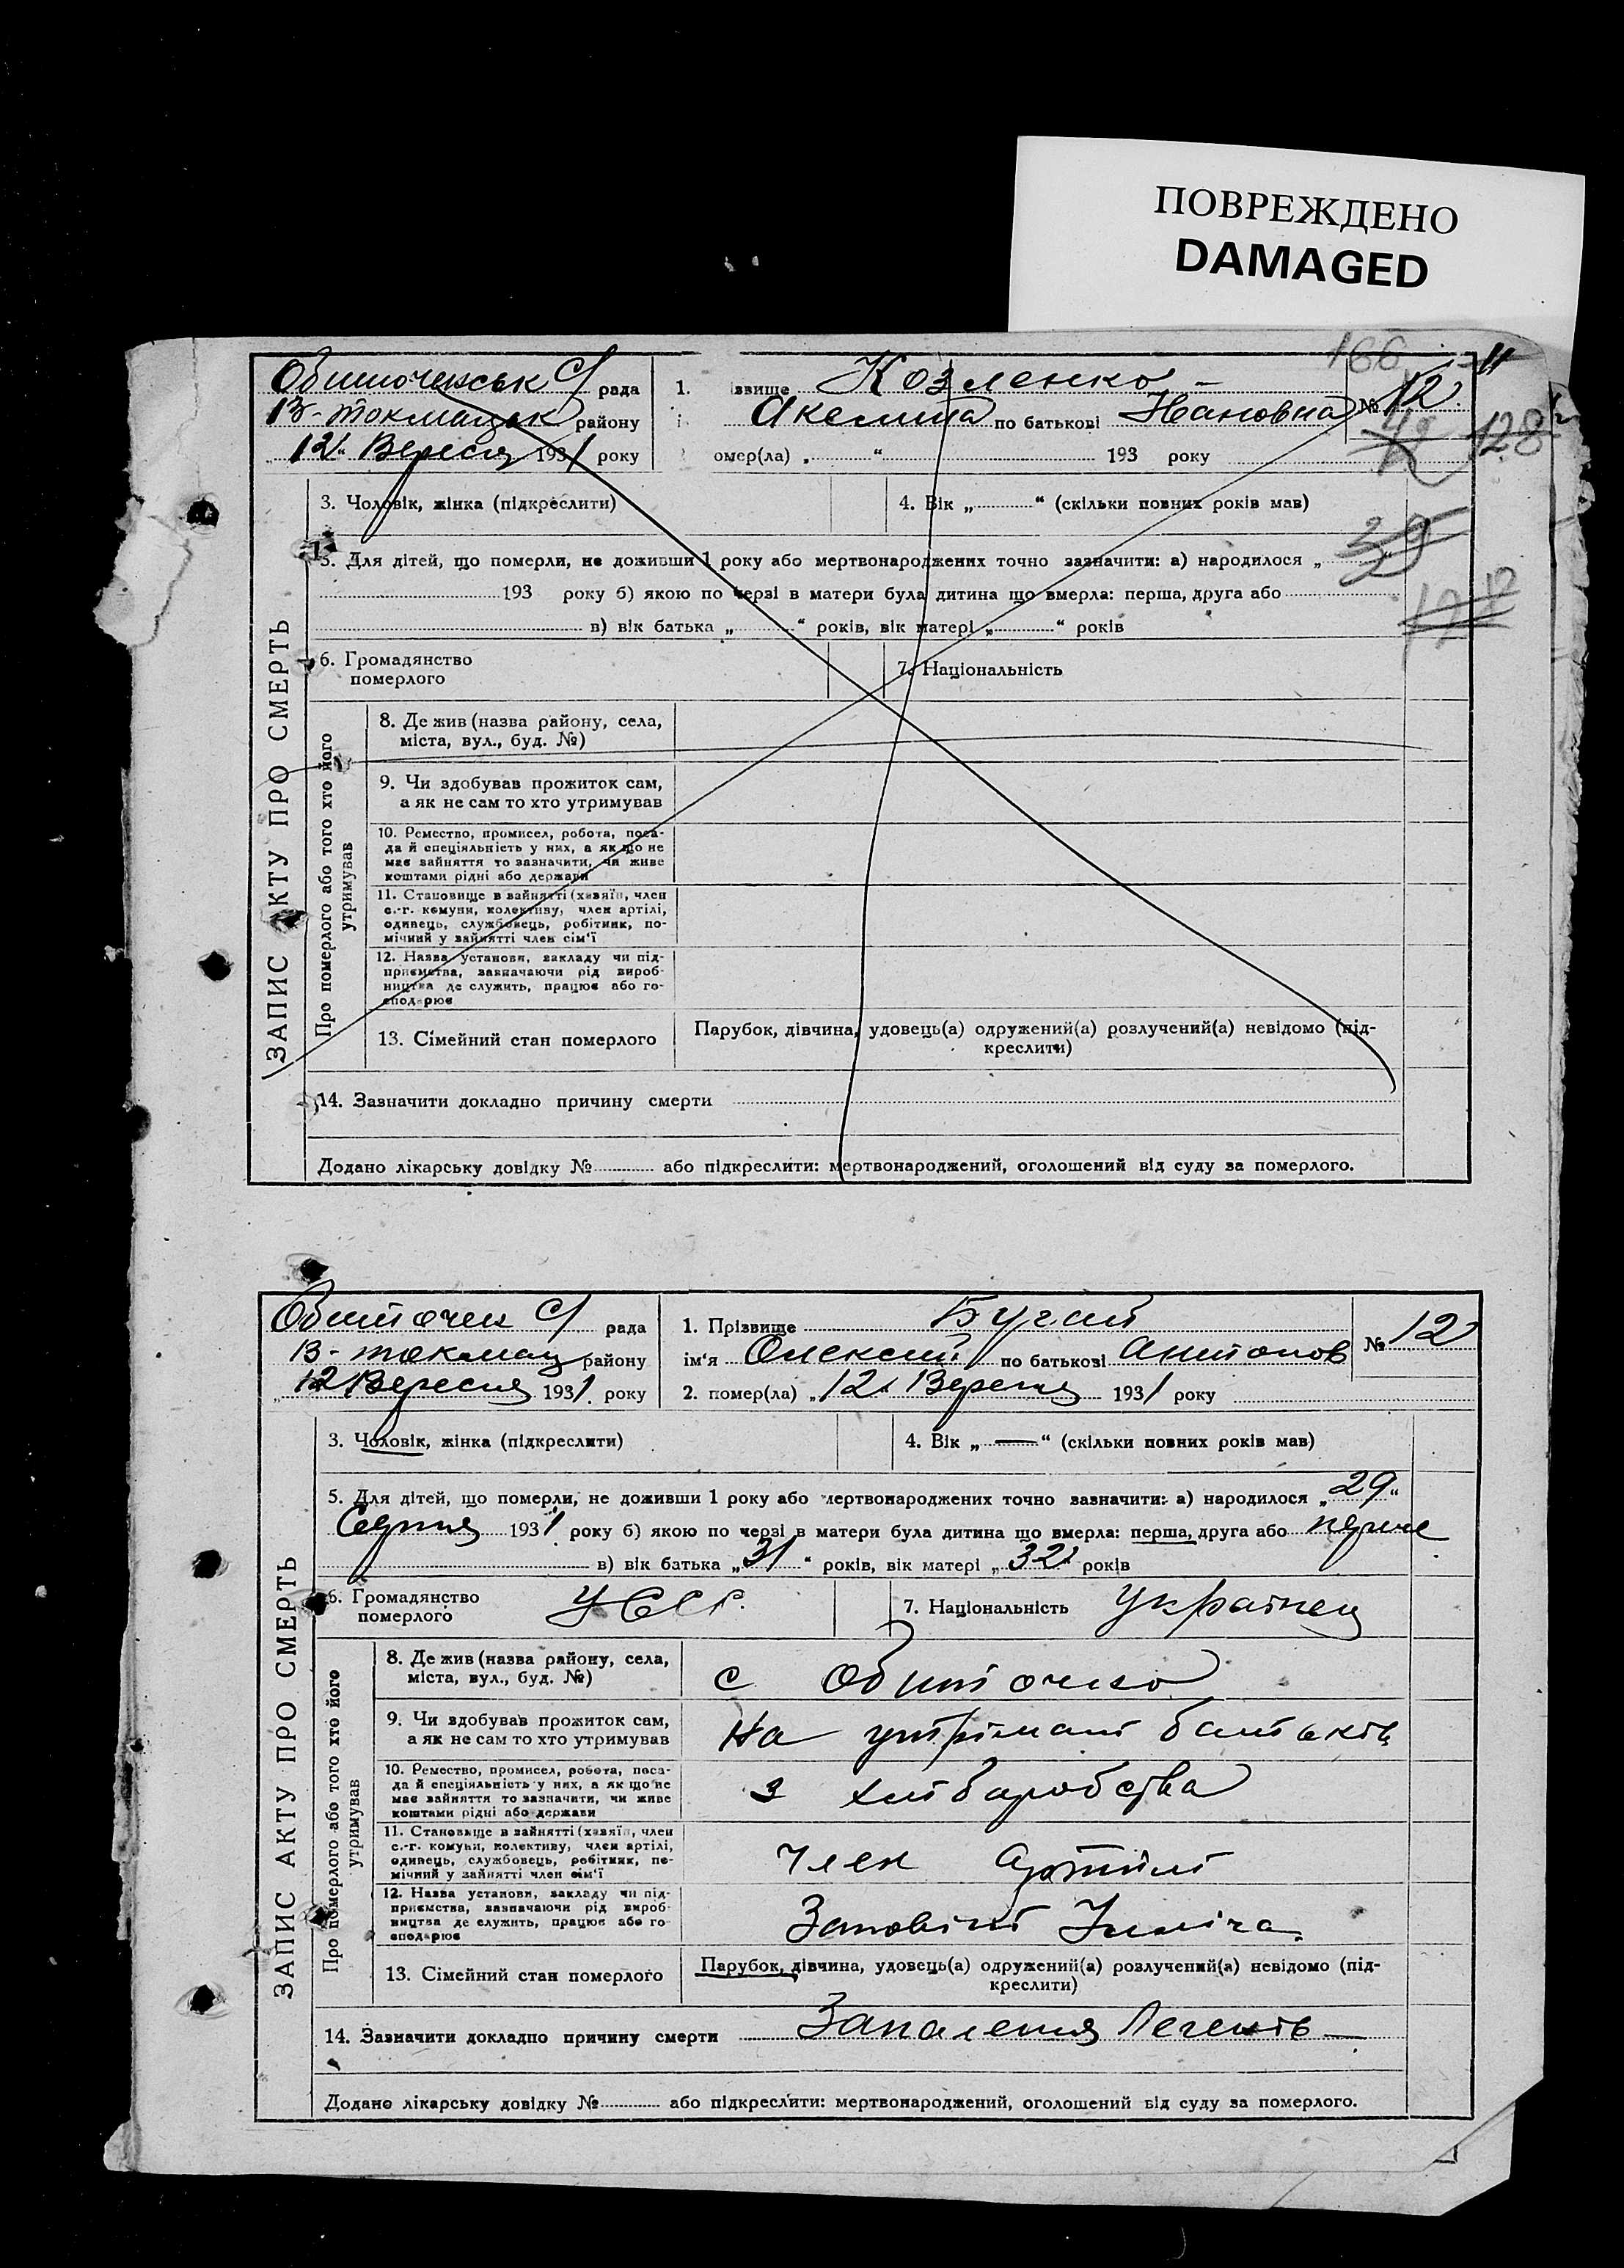 ПОВРЕЖДЕНО
DAMAGED
166
11
Обиточенськ С/ рада
В-токмацьк району
„12“ Вересня 1931 року
1. ізвище Козленко
Акелина по батькові Ивановна
№ 12
128
омер(ла) „ “ 193 року
3. Чоловік, жінка (підкреслити)
4. Вік „ “ (скільки повних років мав)
39
5. Для дітей, що померли, не доживши 1 року або мертвонароджених точно зазначити: а) народилося „
193 року б) якою по черзі в матери була дитина що вмерла: перша, друга або
в) вік батька „ “ років, вік матері „ “ років
ЗАПИС АКТУ ПРО СМЕРТЬ
6. Громадянство
померлого
7. Національність
Про померлого або того хто його
утримував
8. Де жив (назва району, села,
міста, вул., буд. №)
9. Чи здобував прожиток сам,
а як не сам то хто утримував
10. Ремество, промисел, робота, поса-
да й спеціяльність у них, а як що не
має зайняття то зазначити, чи живе
коштами рідні або держави
11. Становище в зайнятті (хазяїн, член
с.-г. комуни, колективу, член артілі,
одинець, службовець, робітник, по-
мічний у зайнятті член сім'ї
12. Назва установи, закладу чи під-
приємства, зазначаючи рід вироб-
ництва де служить, працює або го-
сподарює
13. Сімейний стан померлого
Парубок, дівчина, удовець(а) одружений(а) розлучений(а) невідомо (під-
креслити)
14. Зазначити докладно причину смерти
Додано лікарську довідку № або підкреслити: мертвонароджений, оголошений від суду за померлого.
Обиточен С/ рада
В-токмац району
„12 Вересня 1931 року
1. Прізвище Бугай
ім'я Олексий по батькові Антонов
№ 12
2. помер(ла) „12“ Вересня 1931 року
3. Чоловік, жінка (підкреслити)
4. Вік „—“ (скільки повних років мав)
5. Для дітей, що померли, не доживши 1 року або мертвонароджених точно зазначити: а) народилося „29“
Серпня 1931 року б) якою по черзі в матери була дитина що вмерла: перша, друга або
в) вік батька „31“ років, вік матері „32“ років
ЗАПИС АКТУ ПРО СМЕРТЬ
6. Громадянство
померлого
УССР.
7. Національність Українец
Про померлого або того хто його
утримував
8. Де жив (назва району, села,
міста, вул., буд. №)
с Обиточно
9. Чи здобував прожиток сам,
а як не сам то хто утримував
На утрімані батьків
10. Ремество, промисел, робота, поса-
да й спеціяльність у них, а як що не
має зайняття то зазначити, чи живе
коштами рідні або держави
з хліборобства
11. Становище в зайнятті (хазяїн, член
с.-г. комуни, колективу, член артілі,
одинець, службовець, робітник, по-
мічний у зайнятті член сім'ї
Член Артілі
12. Назва установи, закладу чи під-
приємства, зазначаючи рід вироб-
ництва де служить, працює або го-
сподарює
Заповіті Ілліча
13. Сімейний стан померлого
Парубок, дівчина, удовець(а) одружений(а) розлучений(а) невідомо (під-
креслити)
14. Зазначити докладно причину смерти Запалення Легенів
Додано лікарську довідку № або підкреслити: мертвонароджений, оголошений від суду за померлого.